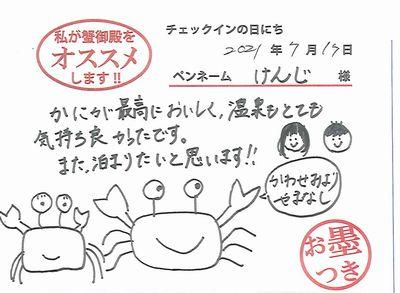 私が蟹御殿を
オススメ
します!!
チェックインの日にち
2021年7月17日
ペンネーム けんじ 様
かにが最高においしく,温泉もとても
気持ち良かったです。
また,泊まりたいと思います!!
かわせみより
やまなし
お墨
つき